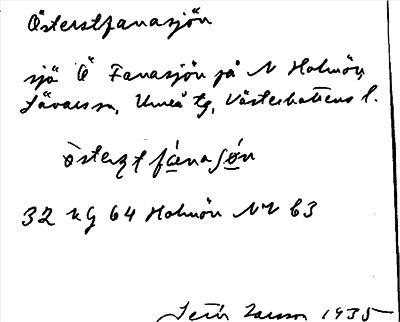 Österstfanasjön
sjö Ö Fanasjön på N Holmön,
Sävars sn, Umeå tg, Västerbottens l.
österst fánasǿn
32 kg 64 Holmön NV b3
1935